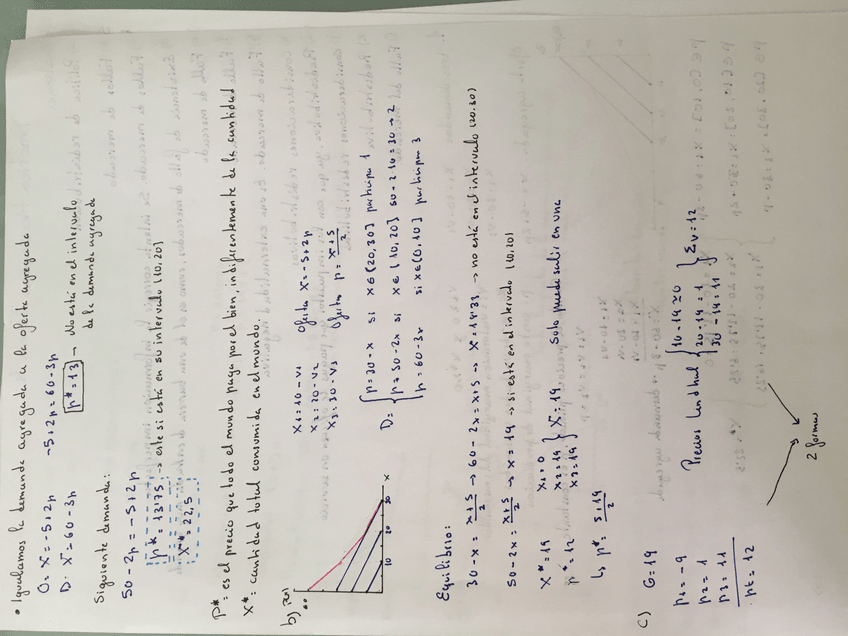 • Igualamos la demanda agregada a la oferta agregada
O: X = -5+2p
D: X = 60-3p
-5+2p = 60-3p
p* = 13 → No está en el intervalo de la demanda agregada
Siguiente demanda:
50-2p = -5+2p
p* = 13'75 → este si está en su intervalo (10,20]
X* = 22,5
P* = es el precio que todo el mundo paga por el bien, indiferentemente de la cantidad
X* = cantidad total consumida en el mundo.
b)
60
10 20 30 x
X1 = 10 - V1
X2 = 20 - V2
X3 = 30 - V3
Oferta X = -5+2p
Oferta p = x+5/2
D = { p = 30-x si x ∈ (20,30] participa 1
p = 50-2x si x ∈ (10,20] 50-2·10 = 30 → 2
p = 60-3x si x ∈ (0,10] participan 3
Equilibrio:
30-x = x+5/2 → 60-2x = x+5 → x = 18'33 → no está en el intervalo (20,30)
50-2x = x+5/2 → x = 19 → si está en el intervalo (10,20)
X* = 19
p* = 12
↳ p* = 5+19/2
X1 = 0
X2 = 19
X3 = 19
} X = 19 Solo puede salir en una
c) G = 19
p1 = -9
p2 = 1
p3 = 11
pt = 12
Precios Lindhal { 10-19 ≃ 0
20-19 = 1
30-19 = 11
} Σv = 12
2 formas